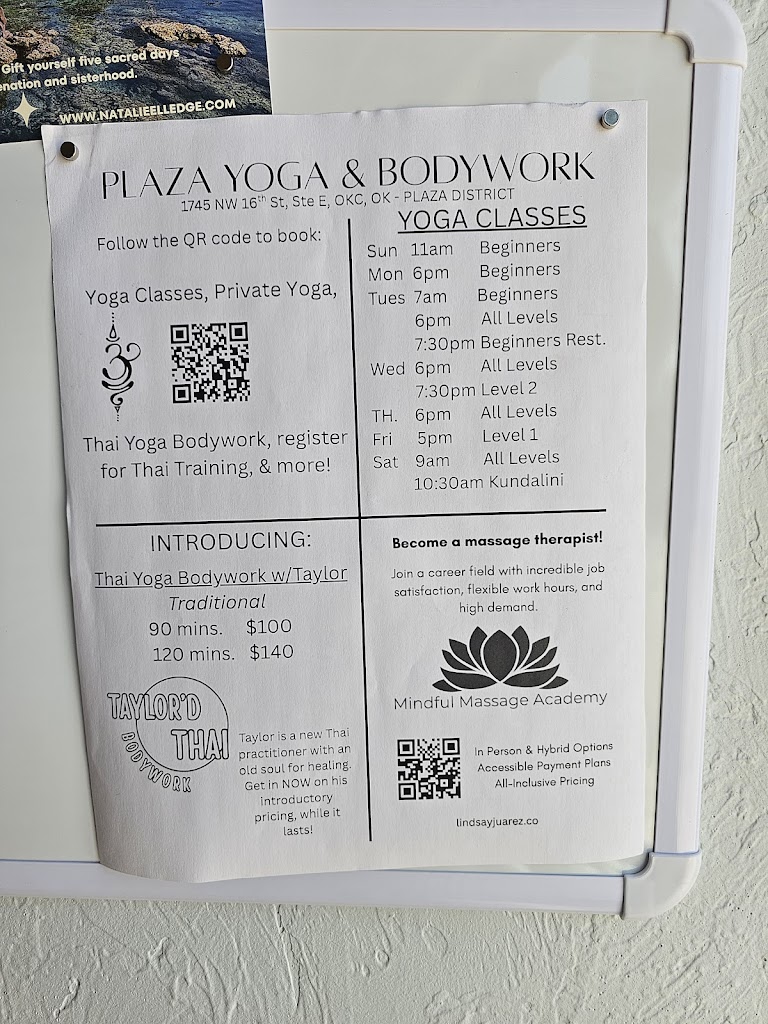 Gift yourself five sacred days
enation and sisterhood.
WWW.NATALIEELLEDGE.COM
PLAZA YOGA & BODYWORK
1745 NW 16th St, Ste E, OKC, OK - PLAZA DISTRICT
Follow the QR code to book:
Yoga Classes, Private Yoga,
Thai Yoga Bodywork, register
for Thai Training, & more!
YOGA CLASSES
Sun 11am Beginners
Mon 6pm Beginners
Tues 7am Beginners
6pm All Levels
7:30pm Beginners Rest.
Wed 6pm All Levels
7:30pm Level 2
TH. 6pm All Levels
Fri 5pm Level 1
Sat 9am All Levels
10:30am Kundalini
INTRODUCING:
Thai Yoga Bodywork w/Taylor
Traditional
90 mins. $100
120 mins. $140
TAYLOR'D
THAI
BODYWORK
Taylor is a new Thai
practitioner with an
old soul for healing.
Get in NOW on his
introductory
pricing, while it
lasts!
Become a massage therapist!
Join a career field with incredible job
satisfaction, flexible work hours, and
high demand.
Mindful Massage Academy
In Person & Hybrid Options
Accessible Payment Plans
All-Inclusive Pricing
lindsayjuarez.co